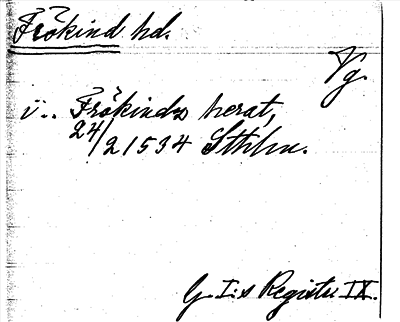 Frökind hd.
Vg.
i .. Frökindz herat,
24/2 1534 Sthlm.
G. I:s Registr IX.